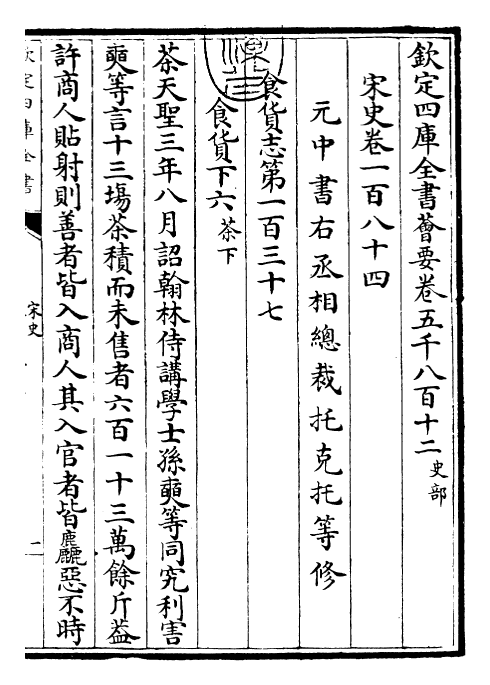 欽定四庫全書薈要卷五千八百十二史部
宋史卷一百八十四
元中書右丞相總裁托克托等修
食貨志第一百三十七
食貨下六茶下
茶天聖三年八月詔翰林侍講學士孫奭等同究利害
奭等言十三場茶積而未售者六百一十三萬餘斤蓋
許商人貼射則善者皆入商人其入官者皆麤惡不時
欽定四庫全書
宋史